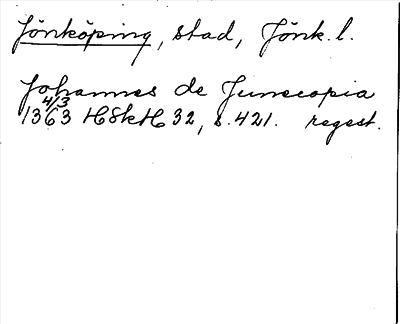 Jönköping, stad, Jönk. l.
Johannes de Junecopia
4/3
1363 HSkH 32, s. 421. regest.